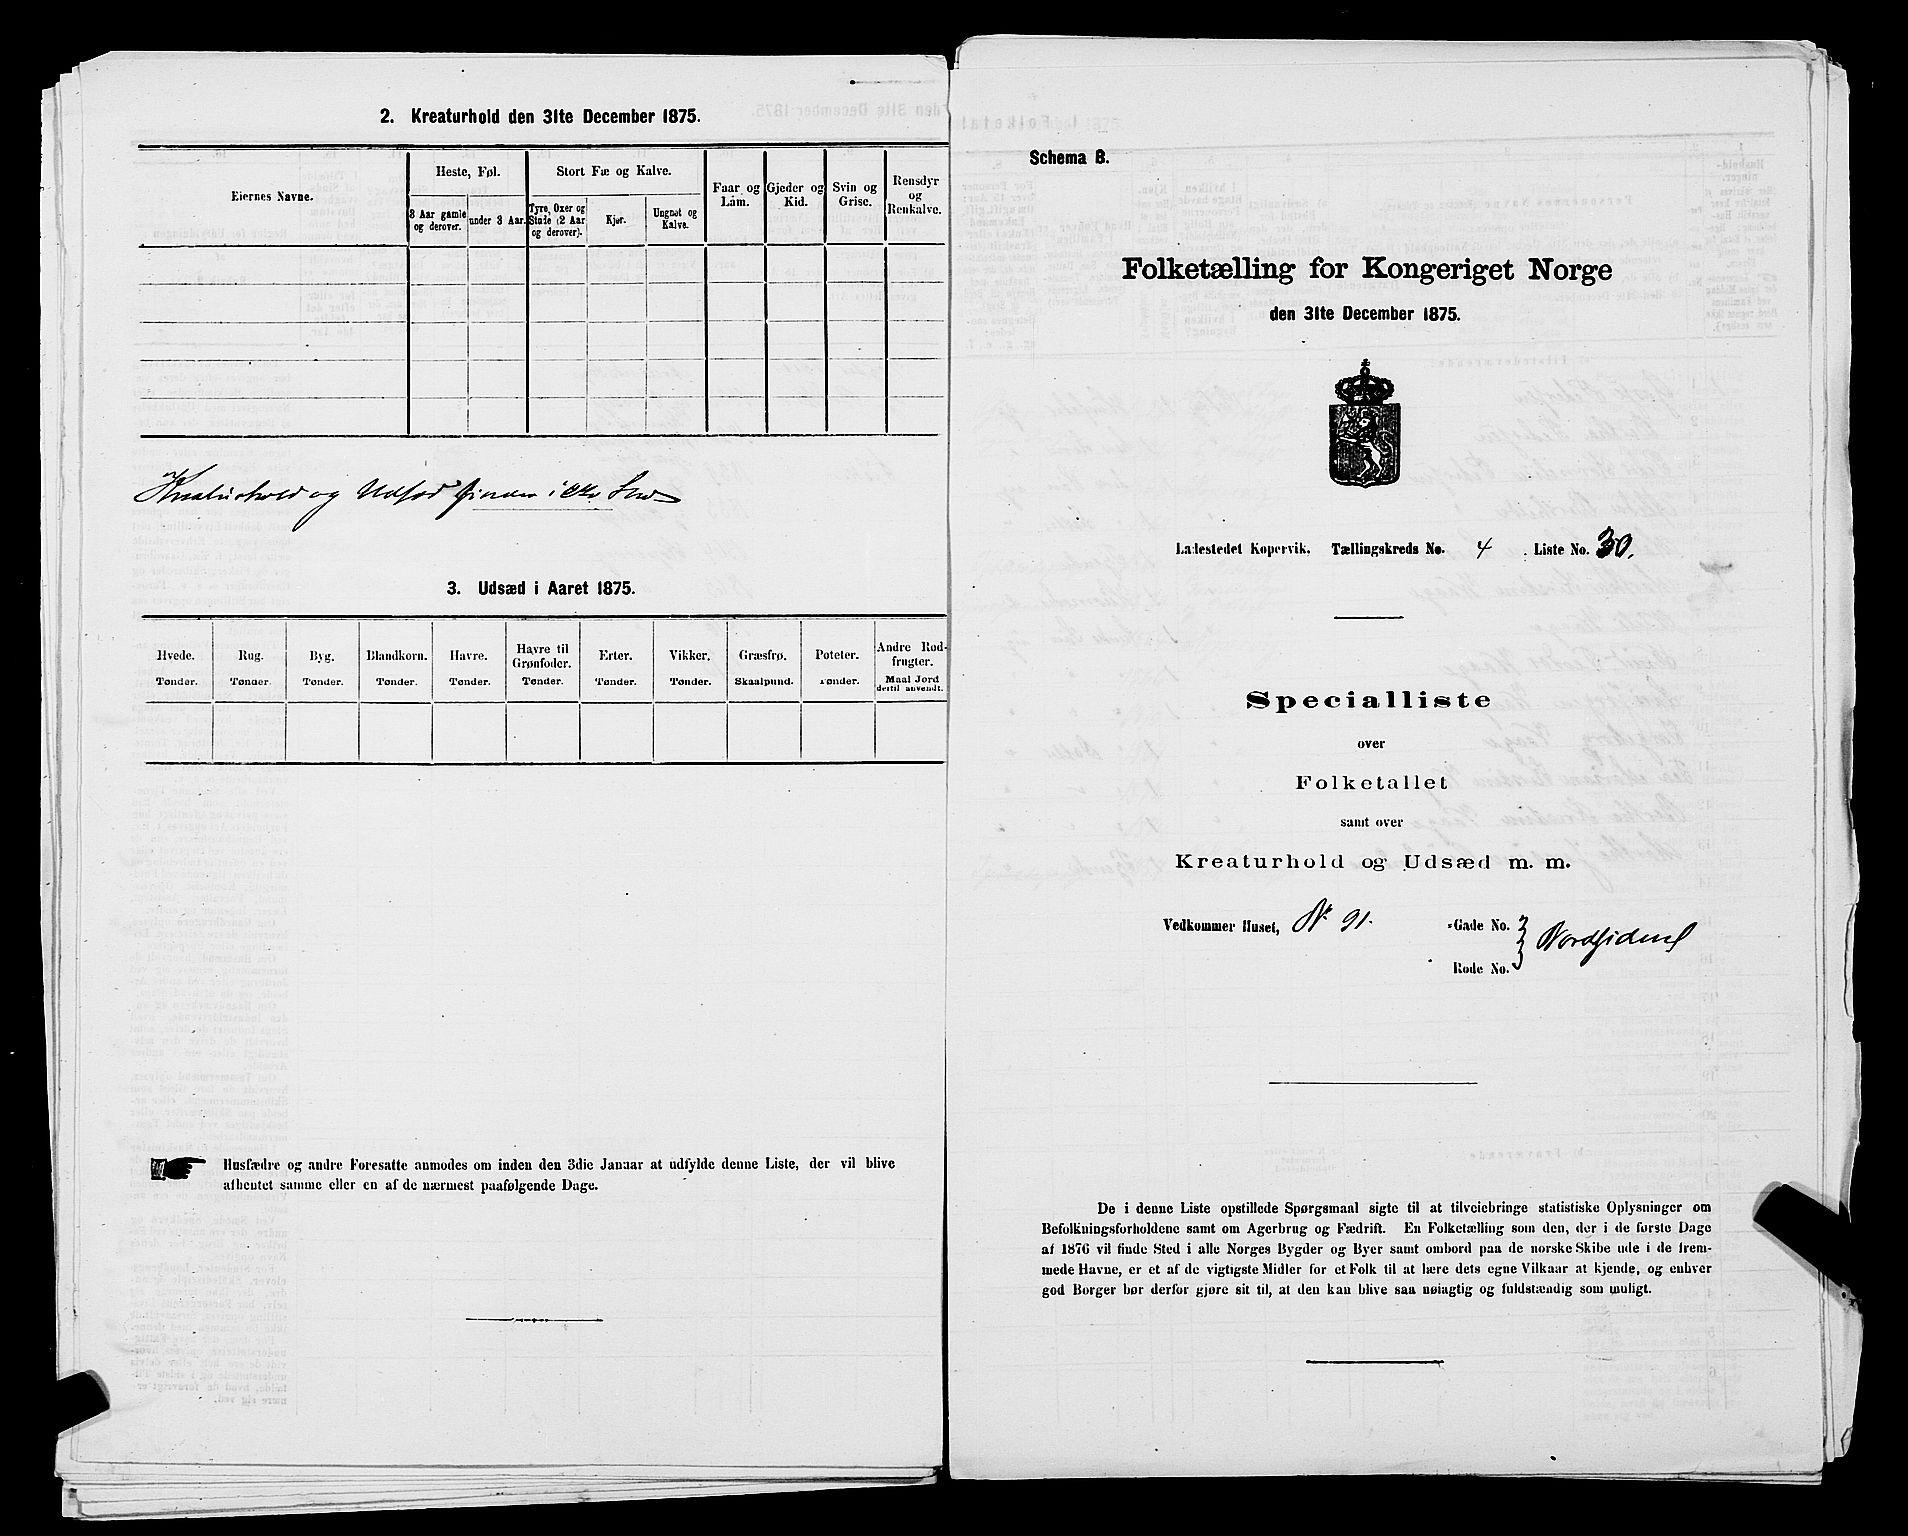 2. Kreaturhold den 31te December 1875.
Eiernes Navne.
Heste, Føl.
Stort Fæ og Kalve.
Faar og Lam.
Gjeder og Kid.
Svin og Grise.
Rensdyr og Renkalve.
3 Aar gamle og derover.
under 3 Aar.
Tyre, Oxer og Stude (2 Aar og derover).
Kjør.
Ungnøt og Kalve.
Kreaturhold og Udsæd finder ikke Sted
3. Udsæd i Aaret 1875.
Hvede. Rug. Byg. Blandkorn. Havre. Havre til Grønfoder. Erter. Vikker. Græsfrø. Poteter. Andre Rodfrugter.
Tønder. Tønder. Tønder. Tønder. Tønder. Tønder. Tønder. Tønder. Skaalpund. Tønder. Maal Jord dertil anvendt.
Husfædre og andre Foresatte anmodes om inden den 3die Januar at udfylde denne Liste, der vil blive
afhentet samme eller en af de nærmest paafølgende Dage.
Schema B.
Folketælling for Kongeriget Norge
den 31te December 1875.
Ladestedet Kopervik. Tællingskreds No. 4 Liste No. 30.
Specialliste
over
Folketallet
samt over
Kreaturhold og Udsæd m. m.
Vedkommer Huset, No 91. -Gade No.
Nordsiden
Rode No.
De i denne Liste opstillede Spørgsmaal sigte til at tilveiebringe statistiske Oplysninger om
Befolkningsforholdene samt om Agerbrug og Fædrift. En Folketælling som den, der i de første Dage
af 1876 vil finde Sted i alle Norges Bygder og Byer samt ombord paa de norske Skibe ude i de frem-
mede Havne, er et af de vigtigste Midler for et Folk til at lære dets egne Vilkaar at kjende, og enhver
god Borger bør derfor gjøre sit til, at den kan blive saa nøiagtig og fuldstændig som muligt.